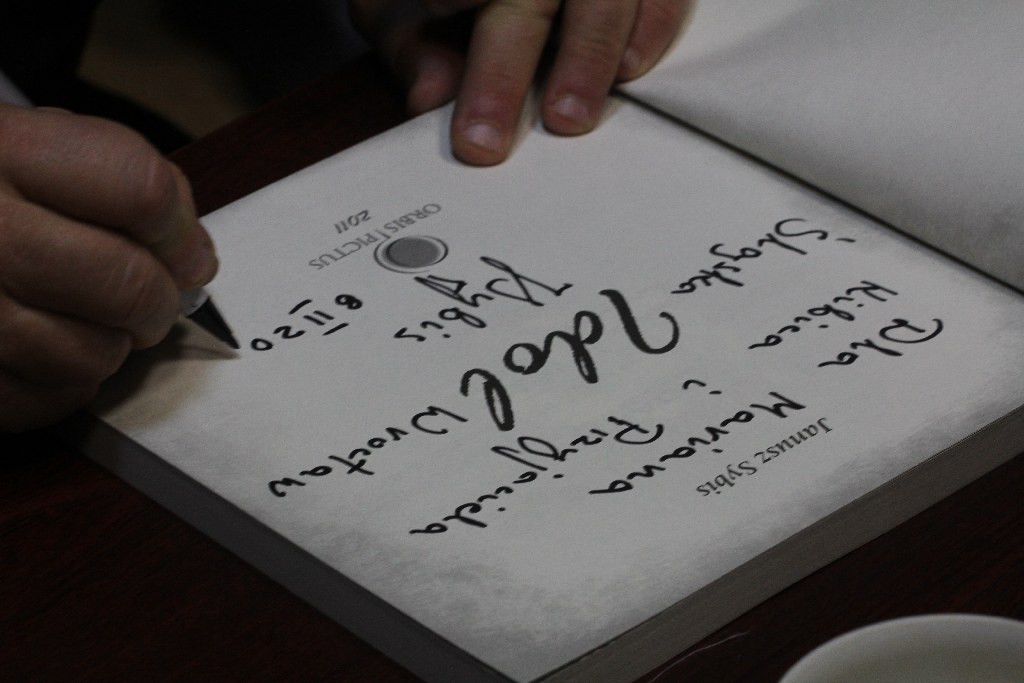 Janusz Sybis
Dla Mariana
Kibica i Przyjaciela
Śląska Wrocław
Idol
Sybis
8 II 20
ORBIS | PICTUS
2011